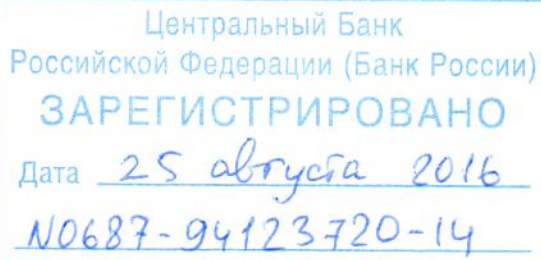 Центральный Банк
Российской Федерации (Банк России)
ЗАРЕГИСТРИРОВАНО
Дата 25 августа 2016
N0687-94123720-14